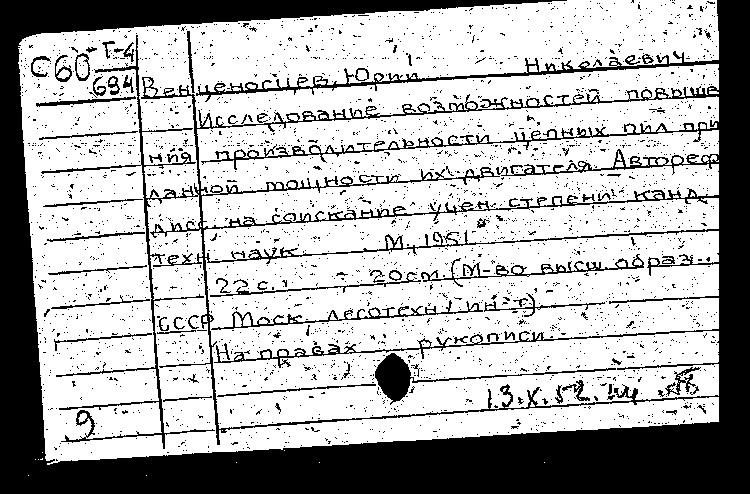 С60 Т-4
694
Венценосцев, Юрий Николаевич
Исследование возможностей повыше
ния производительности цепных пил при
данной мощности их двигателя. Автореф
дисс. на соискание учен. степени канд.
техн. наук. М., 1951.
22 с. ; 20 см. (М-во высш. образ..
СССР. Моск. лесотехн. ин-т)
На правах рукописи.
13.X.52.
9